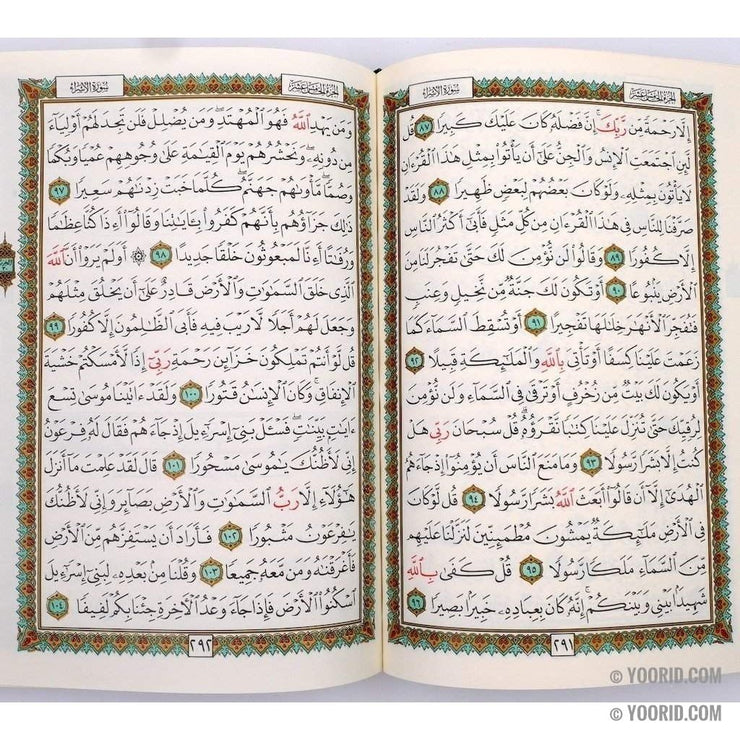 الجزء الخامس عشر
سورة الإسراء
إِلَّا رَحْمَةً مِّن رَّبِّكَ ۚ إِنَّ فَضْلَهُۥ كَانَ عَلَيْكَ كَبِيرًا ٨٧ قُل
لَّئِنِ ٱجْتَمَعَتِ ٱلْإِنسُ وَٱلْجِنُّ عَلَىٰٓ أَن يَأْتُوا۟ بِمِثْلِ هَٰذَا ٱلْقُرْءَانِ
لَا يَأْتُونَ بِمِثْلِهِۦ وَلَوْ كَانَ بَعْضُهُمْ لِبَعْضٍ ظَهِيرًا ٨٨ وَلَقَدْ
صَرَّفْنَا لِلنَّاسِ فِى هَٰذَا ٱلْقُرْءَانِ مِن كُلِّ مَثَلٍ فَأَبَىٰٓ أَكْثَرُ ٱلنَّاسِ
إِلَّا كُفُورًا ٨٩ وَقَالُوا۟ لَن نُّؤْمِنَ لَكَ حَتَّىٰ تَفْجُرَ لَنَا مِنَ
ٱلْأَرْضِ يَنۢبُوعًا ٩٠ أَوْ تَكُونَ لَكَ جَنَّةٌ مِّن نَّخِيلٍ وَعِنَبٍ
فَتُفَجِّرَ ٱلْأَنْهَٰرَ خِلَٰلَهَا تَفْجِيرًا ٩١ أَوْ تُسْقِطَ ٱلسَّمَآءَ كَمَا
زَعَمْتَ عَلَيْنَا كِسَفًا أَوْ تَأْتِىَ بِٱللَّهِ وَٱلْمَلَٰٓئِكَةِ قَبِيلًا ٩٢
أَوْ يَكُونَ لَكَ بَيْتٌ مِّن زُخْرُفٍ أَوْ تَرْقَىٰ فِى ٱلسَّمَآءِ وَلَن نُّؤْمِنَ
لِرُقِيِّكَ حَتَّىٰ تُنَزِّلَ عَلَيْنَا كِتَٰبًا نَّقْرَؤُهُۥ ۗ قُلْ سُبْحَانَ رَبِّى هَلْ
كُنتُ إِلَّا بَشَرًا رَّسُولًا ٩٣ وَمَا مَنَعَ ٱلنَّاسَ أَن يُؤْمِنُوٓا۟ إِذْ جَآءَهُمُ
ٱلْهُدَىٰٓ إِلَّآ أَن قَالُوٓا۟ أَبَعَثَ ٱللَّهُ بَشَرًا رَّسُولًا ٩٤ قُل لَّوْ كَانَ
فِى ٱلْأَرْضِ مَلَٰٓئِكَةٌ يَمْشُونَ مُطْمَئِنِّينَ لَنَزَّلْنَا عَلَيْهِم
مِّنَ ٱلسَّمَآءِ مَلَكًا رَّسُولًا ٩٥ قُلْ كَفَىٰ بِٱللَّهِ
شَهِيدًۢا بَيْنِى وَبَيْنَكُمْ ۚ إِنَّهُۥ كَانَ بِعِبَادِهِۦ خَبِيرًۢا بَصِيرًا ٩٦
٢٩١
الجزء الخامس عشر
سورة الإسراء
وَمَن يَهْدِ ٱللَّهُ فَهُوَ ٱلْمُهْتَدِ ۖ وَمَن يُضْلِلْ فَلَن تَجِدَ لَهُمْ أَوْلِيَآءَ
مِن دُونِهِۦ ۖ وَنَحْشُرُهُمْ يَوْمَ ٱلْقِيَٰمَةِ عَلَىٰ وُجُوهِهِمْ عُمْيًا وَبُكْمًا
وَصُمًّا ۖ مَّأْوَىٰهُمْ جَهَنَّمُ ۖ كُلَّمَا خَبَتْ زِدْنَٰهُمْ سَعِيرًا ٩٧
ذَٰلِكَ جَزَآؤُهُم بِأَنَّهُمْ كَفَرُوا۟ بِـَٔايَٰتِنَا وَقَالُوٓا۟ أَءِذَا كُنَّا عِظَٰمًا
وَرُفَٰتًا أَءِنَّا لَمَبْعُوثُونَ خَلْقًا جَدِيدًا ٩٨ ۞ أَوَلَمْ يَرَوْا۟ أَنَّ ٱللَّهَ
ٱلَّذِى خَلَقَ ٱلسَّمَٰوَٰتِ وَٱلْأَرْضَ قَادِرٌ عَلَىٰٓ أَن يَخْلُقَ مِثْلَهُمْ
وَجَعَلَ لَهُمْ أَجَلًا لَّا رَيْبَ فِيهِ فَأَبَى ٱلظَّٰلِمُونَ إِلَّا كُفُورًا ٩٩
قُل لَّوْ أَنتُمْ تَمْلِكُونَ خَزَآئِنَ رَحْمَةِ رَبِّىٓ إِذًا لَّأَمْسَكْتُمْ خَشْيَةَ
ٱلْإِنفَاقِ ۚ وَكَانَ ٱلْإِنسَٰنُ قَتُورًا ١٠٠ وَلَقَدْ ءَاتَيْنَا مُوسَىٰ تِسْعَ
ءَايَٰتٍۭ بَيِّنَٰتٍ ۖ فَسْـَٔلْ بَنِىٓ إِسْرَٰٓءِيلَ إِذْ جَآءَهُمْ فَقَالَ لَهُۥ فِرْعَوْنُ
إِنِّى لَأَظُنُّكَ يَٰمُوسَىٰ مَسْحُورًا ١٠١ قَالَ لَقَدْ عَلِمْتَ مَآ أَنزَلَ
هَٰٓؤُلَآءِ إِلَّا رَبُّ ٱلسَّمَٰوَٰتِ وَٱلْأَرْضِ بَصَآئِرَ وَإِنِّى لَأَظُنُّكَ
يَٰفِرْعَوْنُ مَثْبُورًا ١٠٢ فَأَرَادَ أَن يَسْتَفِزَّهُم مِّنَ ٱلْأَرْضِ
فَأَغْرَقْنَٰهُ وَمَن مَّعَهُۥ جَمِيعًا ١٠٣ وَقُلْنَا مِنۢ بَعْدِهِۦ لِبَنِىٓ إِسْرَٰٓءِيلَ
ٱسْكُنُوا۟ ٱلْأَرْضَ فَإِذَا جَآءَ وَعْدُ ٱلْءَاخِرَةِ جِئْنَا بِكُمْ لَفِيفًا ١٠٤
٢٩٢
© YOORID.COM
© YOORID.COM